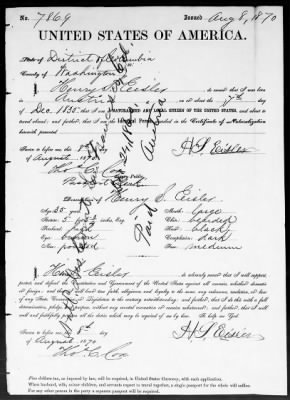 No. 7869 Issued Aug 8, 1870
UNITED STATES OF AMERICA.
State of District of Columbia
County of Washington
I, Henry S. Eisler, do swear that I was born
in Austria on or about the 17th day
of Dec. 1835; that I am a NATURALIZED AND LOYAL CITIZEN OF THE UNITED STATES, and about to
travel abroad; and further, that I am the Identical Person described in the Certificate of Naturalization
herewith presented.
Sworn to before me this 8th day
of August 1870
H. S. Eisler
Thos C. Cox
Passport Clerk
Description of Henry S. Eisler
Age:
Stature: 5 feet inches, Eng.
Forehead:
Eyes: brown
Nose:
Mouth: large
Chin: bearded
Hair: black
Complexion: dark
Face: medium
I, Henry S. Eisler do solemnly swear that I will support,
protect and defend the Constitution and Government of the United States against all enemies, whether
domestic or foreign; and that I will bear true faith, allegiance and loyalty to the same, any ordinance, resolution or law
of any State, Convention or Legislature to the contrary notwithstanding; and further, that I do this with a full
determination, pledge and purpose, without any mental reservation or evasion whatsoever; and further, that I will
well and faithfully perform all the duties which may be required of me by law. So help me God.
Sworn to before me this 8th day
of August 1870
H. S. Eisler
Thos C. Cox
Paid
Austria
Five dollars tax, as imposed by law, will be required, in United States Currency, with each application.
When husband, wife, minor children, and servants expect to travel together, a single passport for the whole will suffice.
For any other person in the party a separate passport will be required.